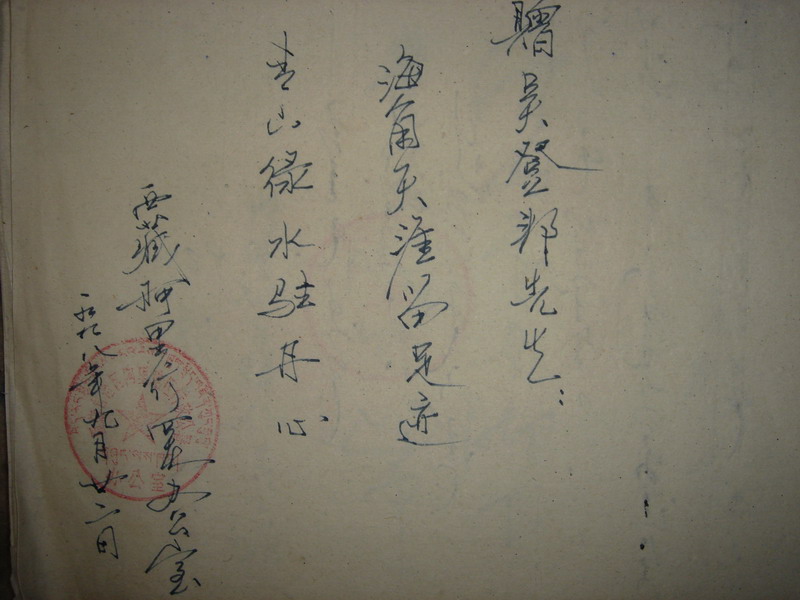 赠吴登邦先生：
海角天涯留足迹
青山绿水驻丹心
西藏阿里行署办公室
一九九八年九月廿二日